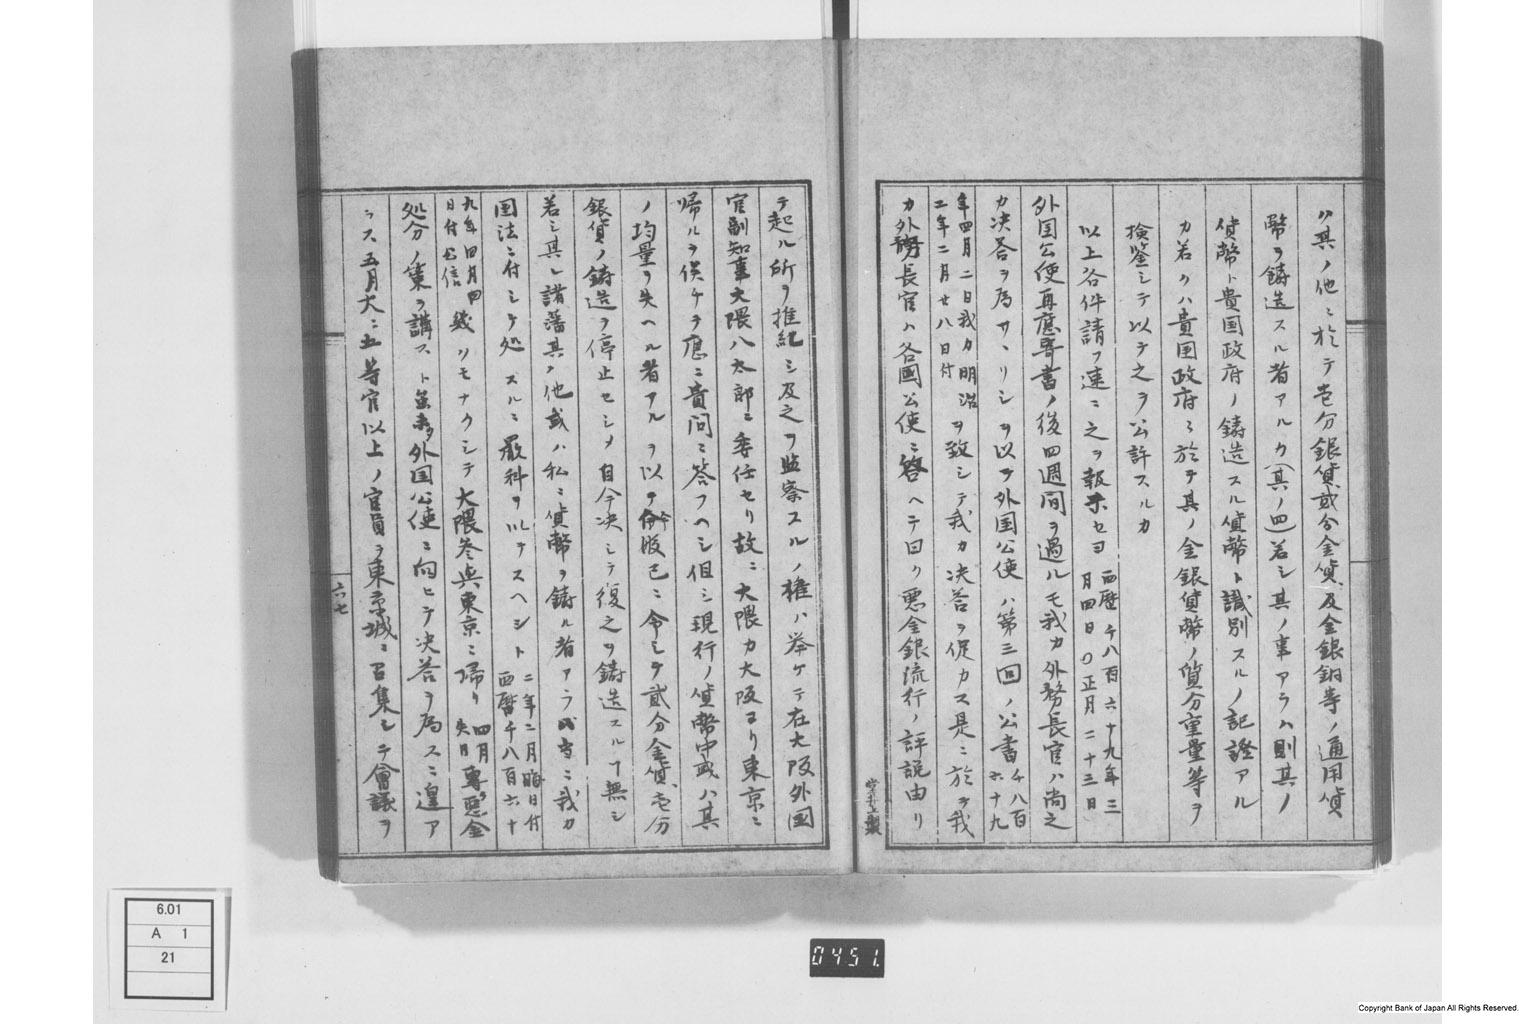 ハ其ノ他ニ於テ壱分銀貨貳分金貨及金銀銅等ノ通用貨
幣ヲ鋳造スル者アルカ(其ノ四)若シ其ノ事アラハ則其ノ
貨幣ト貴国政府ノ鋳造スル貨幣ト識別スルノ記證アル
カ若クハ貴国政府ニ於テ其ノ金銀貨幣ノ質分重量等ヲ
検鉴シテ以テ之ヲ公許スルカ
以上各件請フ速ニ之ヲ報セヨ 西暦千八百六十九年三
月四日〇正月二十三日
外国公使再應寄書ノ後四週間ヲ過ルモ我カ外務長官ハ尚之
カ決答ヲ為サヽリシヲ以テ外国公使ハ第三回ノ公書 千八百
六十九
年四月二日我カ明治
二年二月廿八日付 ヲ致シテ我カ決答ヲ促カス是ニ於テ我
カ外務長官ハ各國公使ニ答ヘテ曰ク悪金銀流行ノ評説由リ
テ起ル所ヲ推紀シ及之ヲ監察スルノ権ハ挙ケテ在大阪外国
官副知事大隈八太郎ニ委任セリ故ニ大隈カ大阪ヨリ東京ニ
帰ルヲ俟ケテ應ニ貴問ニ答フヘシ但シ現行ノ貨幣中或ハ其
ノ均量ヲ失ヘル者アルヲ以テ政已ニ令シテ貳分金貨壱分
銀貨ノ鋳造ヲ停止セシメ自今決シテ復之ヲ鋳造スルヿ無シ
若シ其レ諸藩其ノ他或ハ私ニ貨幣ヲ鋳ル者アラハ当ニ我カ
国法ニ付シケ処スルニ嚴科ヲ以テスヘシト 二年二月晦日付
西暦千八百六十
九年四月四
日付公信 幾ソモナクシテ大隈参與東京ニ帰リ 四月
失日 専悪金
処分ノ策ヲ講スト虽外国公使ニ向ヒテ決答ヲ為スニ遑ア
ラス五月大ニ五等官以上ノ官員ヲ東京城ニ召集シテ會議ヲ
六七
6.01
A 1
21
0451.
Copyright Bank of Japan All Rights Reserved.